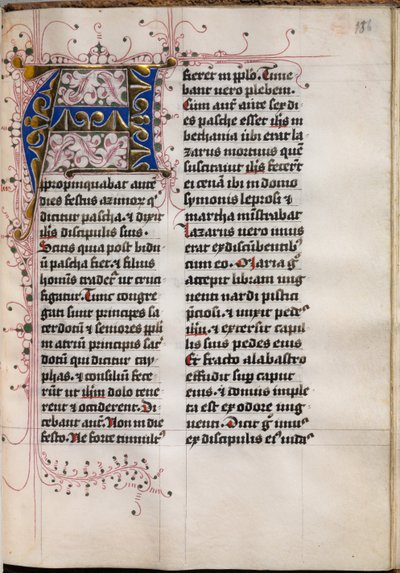 186
A
ppropinquabat aute
dies festus azimoꝝ q̄
dicitur pascha. & dixit
ih̄s discipulis suis.
Scitis quia post bidu
ū pascha fiet. & filius
hominis tradet᷑ ut cruci
figatur. Tunc congre
gati sunt principes sa
cerdotū & seniores pp̄li
in atriū principis sac᷑
dotū qui dicitur cay
phas. & consiliū fece
rūt ut ih̄m dolo tene
rent & occiderent. Di
cebant aut̄. Non in die
festo. Ne forte tumult᷒
fieret in pp̄lo. Time
bant uero plebem.
Cum aut̄ ante sex di
es pasche esset ih̄s in
bethania ubi erat la
zarus mortuus quē
suscitauit ih̄s fecer̄t
ei cenā ibi in domo
symonis leprosi &
martha mīstrabat
Lazarus uero unus
erat ex discūbentib᷒
cum eo. Maria g̊
accepit libram ung
uenti nardi pistici
p̄ciosi. & unxit pedes
ih̄u. & extersit capil
lis suis pedes eius
Et fracto alabastro
effudit sup̱ caput
eius. & domus imple
ta est ex odore ung
uenti. Dicit g̊ unus
ex discipulis ei᷒ iudas